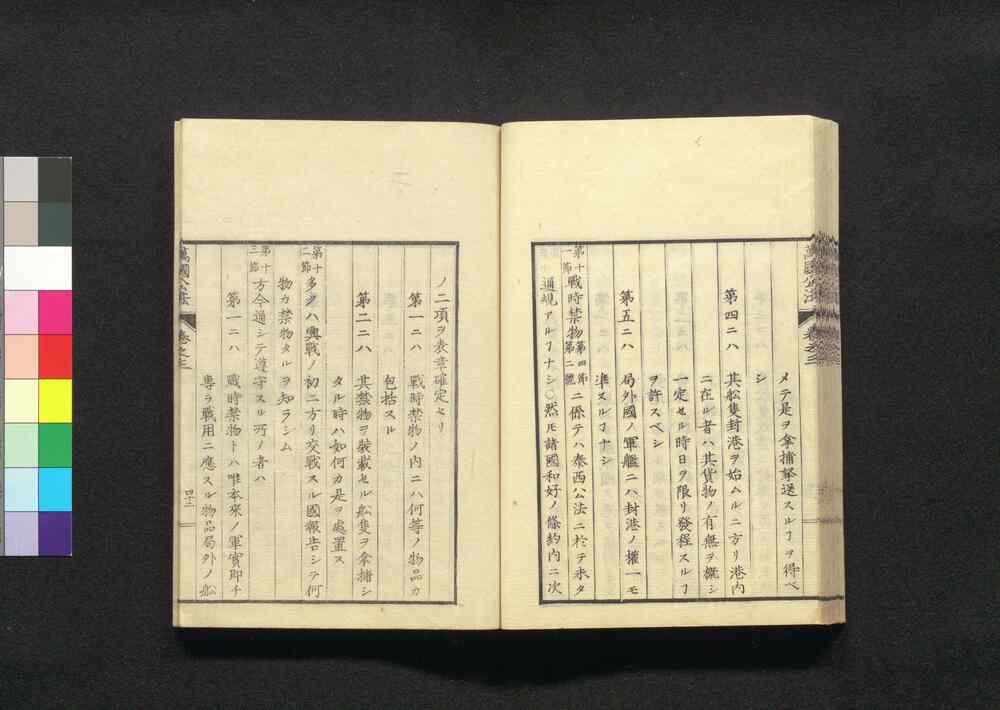 メテ是ヲ拿捕拏送スルヿヲ得ベ
シ
第四ニハ 其舩隻封港ヲ始ムルニ方リ港内
ニ在ル者ハ其貨物ノ有無ヲ概シ
一定セル時日ヲ限リ發程スルヿ
ヲ許スベシ
第五ニハ 局外國ノ軍艦ニハ封港ノ權一モ
準スルヿナシ
第十一節 戦時禁物第四節第二號ニ係テハ泰西公法ニ於テ未タ
通規アルヿナシ○然モ諸國和好ノ條約内ニ次
萬國公法 卷之三
ノ二項ヲ表章確定セリ
第一ニハ 戦時禁物ノ内ニハ何等ノ物品カ
包括スル
第二ニハ 其禁物ヲ裝載セル舩隻ヲ拿捕シ
タル時ハ如何カ是ヲ處置ス
第十二節 多クハ興戰ノ初ニ方リ交戰スル國報告シテ何
物カ禁物タルヲ知ラシム
第十三節 方今通シテ遵守スル所ノ者ハ
第一ニハ 戰時禁物トハ唯本來ノ軍實即チ
専ラ戰用ニ應スル物品局外ノ舩
萬國公法 卷之三 四十三